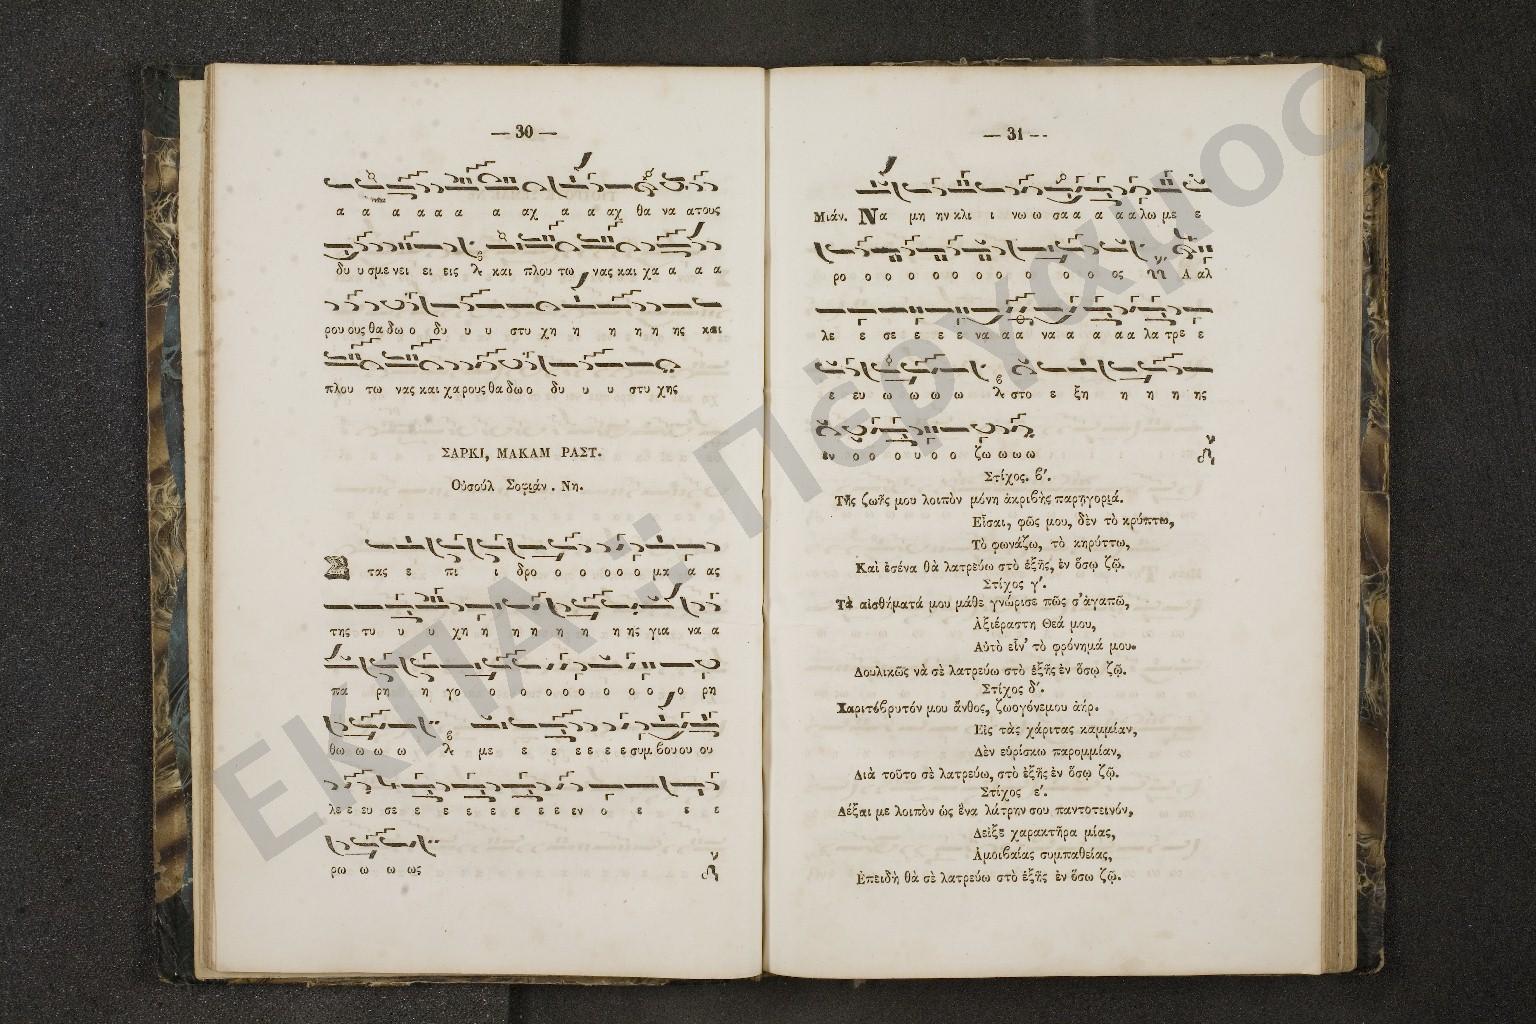 — 30 —
α α α α α α α αχ α α αχ θα να απους
δυ υ σμε νει ει εις και πλου τω νας και χα α α α
ρου ους θα δω ο δυ υ υ στυ χη η η η η ης και
πλου τω νας και χα ρους θα δω ο δυ υ υ στυ χης
ΣΑΡΚΙ, ΜΑΚΑΜ ΡΑΣΤ.
Οὐσοὺλ Σοφιάν. Νη.
τας ε πι ι δρο ο ο ο ο ο μα α ας
της τυ υ υ χη η η η η η η ης για να α
πα ρη η γο ο ο ο ο ο ο ο ο ο ρη
θω ω ω ω με ε ε ε ε ε ε συμ βου ου ου
λε ε ευ σε ε ε ε ε ε ε ε εν ο ε ε ε
ρω ω ω ως
— 31 —
Μιάν. Να μη ην κλι ι νω ω σα α α α α λω με ε
ρο ο ο ο ο ο ο ο ο ο ο ος Α αλ
λε ε σε ε ε ε να α α να α α α α λα τρε ε
ε ευ ω ω ω ω στο ε ξη η η η ης
εν ο ο ο υ ο ο ζω ω ω ω
Στίχος. β΄.
Τῆς ζωῆς μου λοιπὸν μόνη ἀκριβὴς παρηγοριά.
Εἶσαι, φῶς μου, δὲν τὸ κρύπτω,
Τὸ φωνάζω, τὸ κηρύττω,
Καὶ ἐσένα θὰ λατρεύω στὸ ἑξῆς, ἐν ὅσῳ ζῶ.
Στίχος γ΄.
Τὰ αἰσθήματά μου μάθε γνώρισε πῶς σ' ἀγαπῶ,
Ἀξιέραστη Θεά μου,
Αὐτὸ εἶν' τὸ φρόνημά μου.
Δουλικῶς νὰ σὲ λατρεύω στὸ ἑξῆς ἐν ὅσῳ ζῶ.
Στίχος δ΄.
Χαριτόβρυτόν μου ἄνθος, ζωογόνεμου ἀήρ.
Εἰς τὰς χάριτας καμμίαν,
Δὲν εὑρίσκω παρομμίαν,
Διὰ τοῦτο σὲ λατρεύω, στὸ ἑξῆς ἐν ὅσῳ ζῶ.
Στίχος ε΄.
Δέξαι με λοιπὸν ὡς ἕνα λάτρην σου παντοτεινόν,
Δεῖξε χαρακτῆρα μίας,
Ἀμοιβαίας συμπαθείας,
Ἐπειδὴ θὰ σὲ λατρεύω στὸ ἑξῆς ἐν ὅσω ζῶ.
ΕΚΠΑ :: Πέργαμος